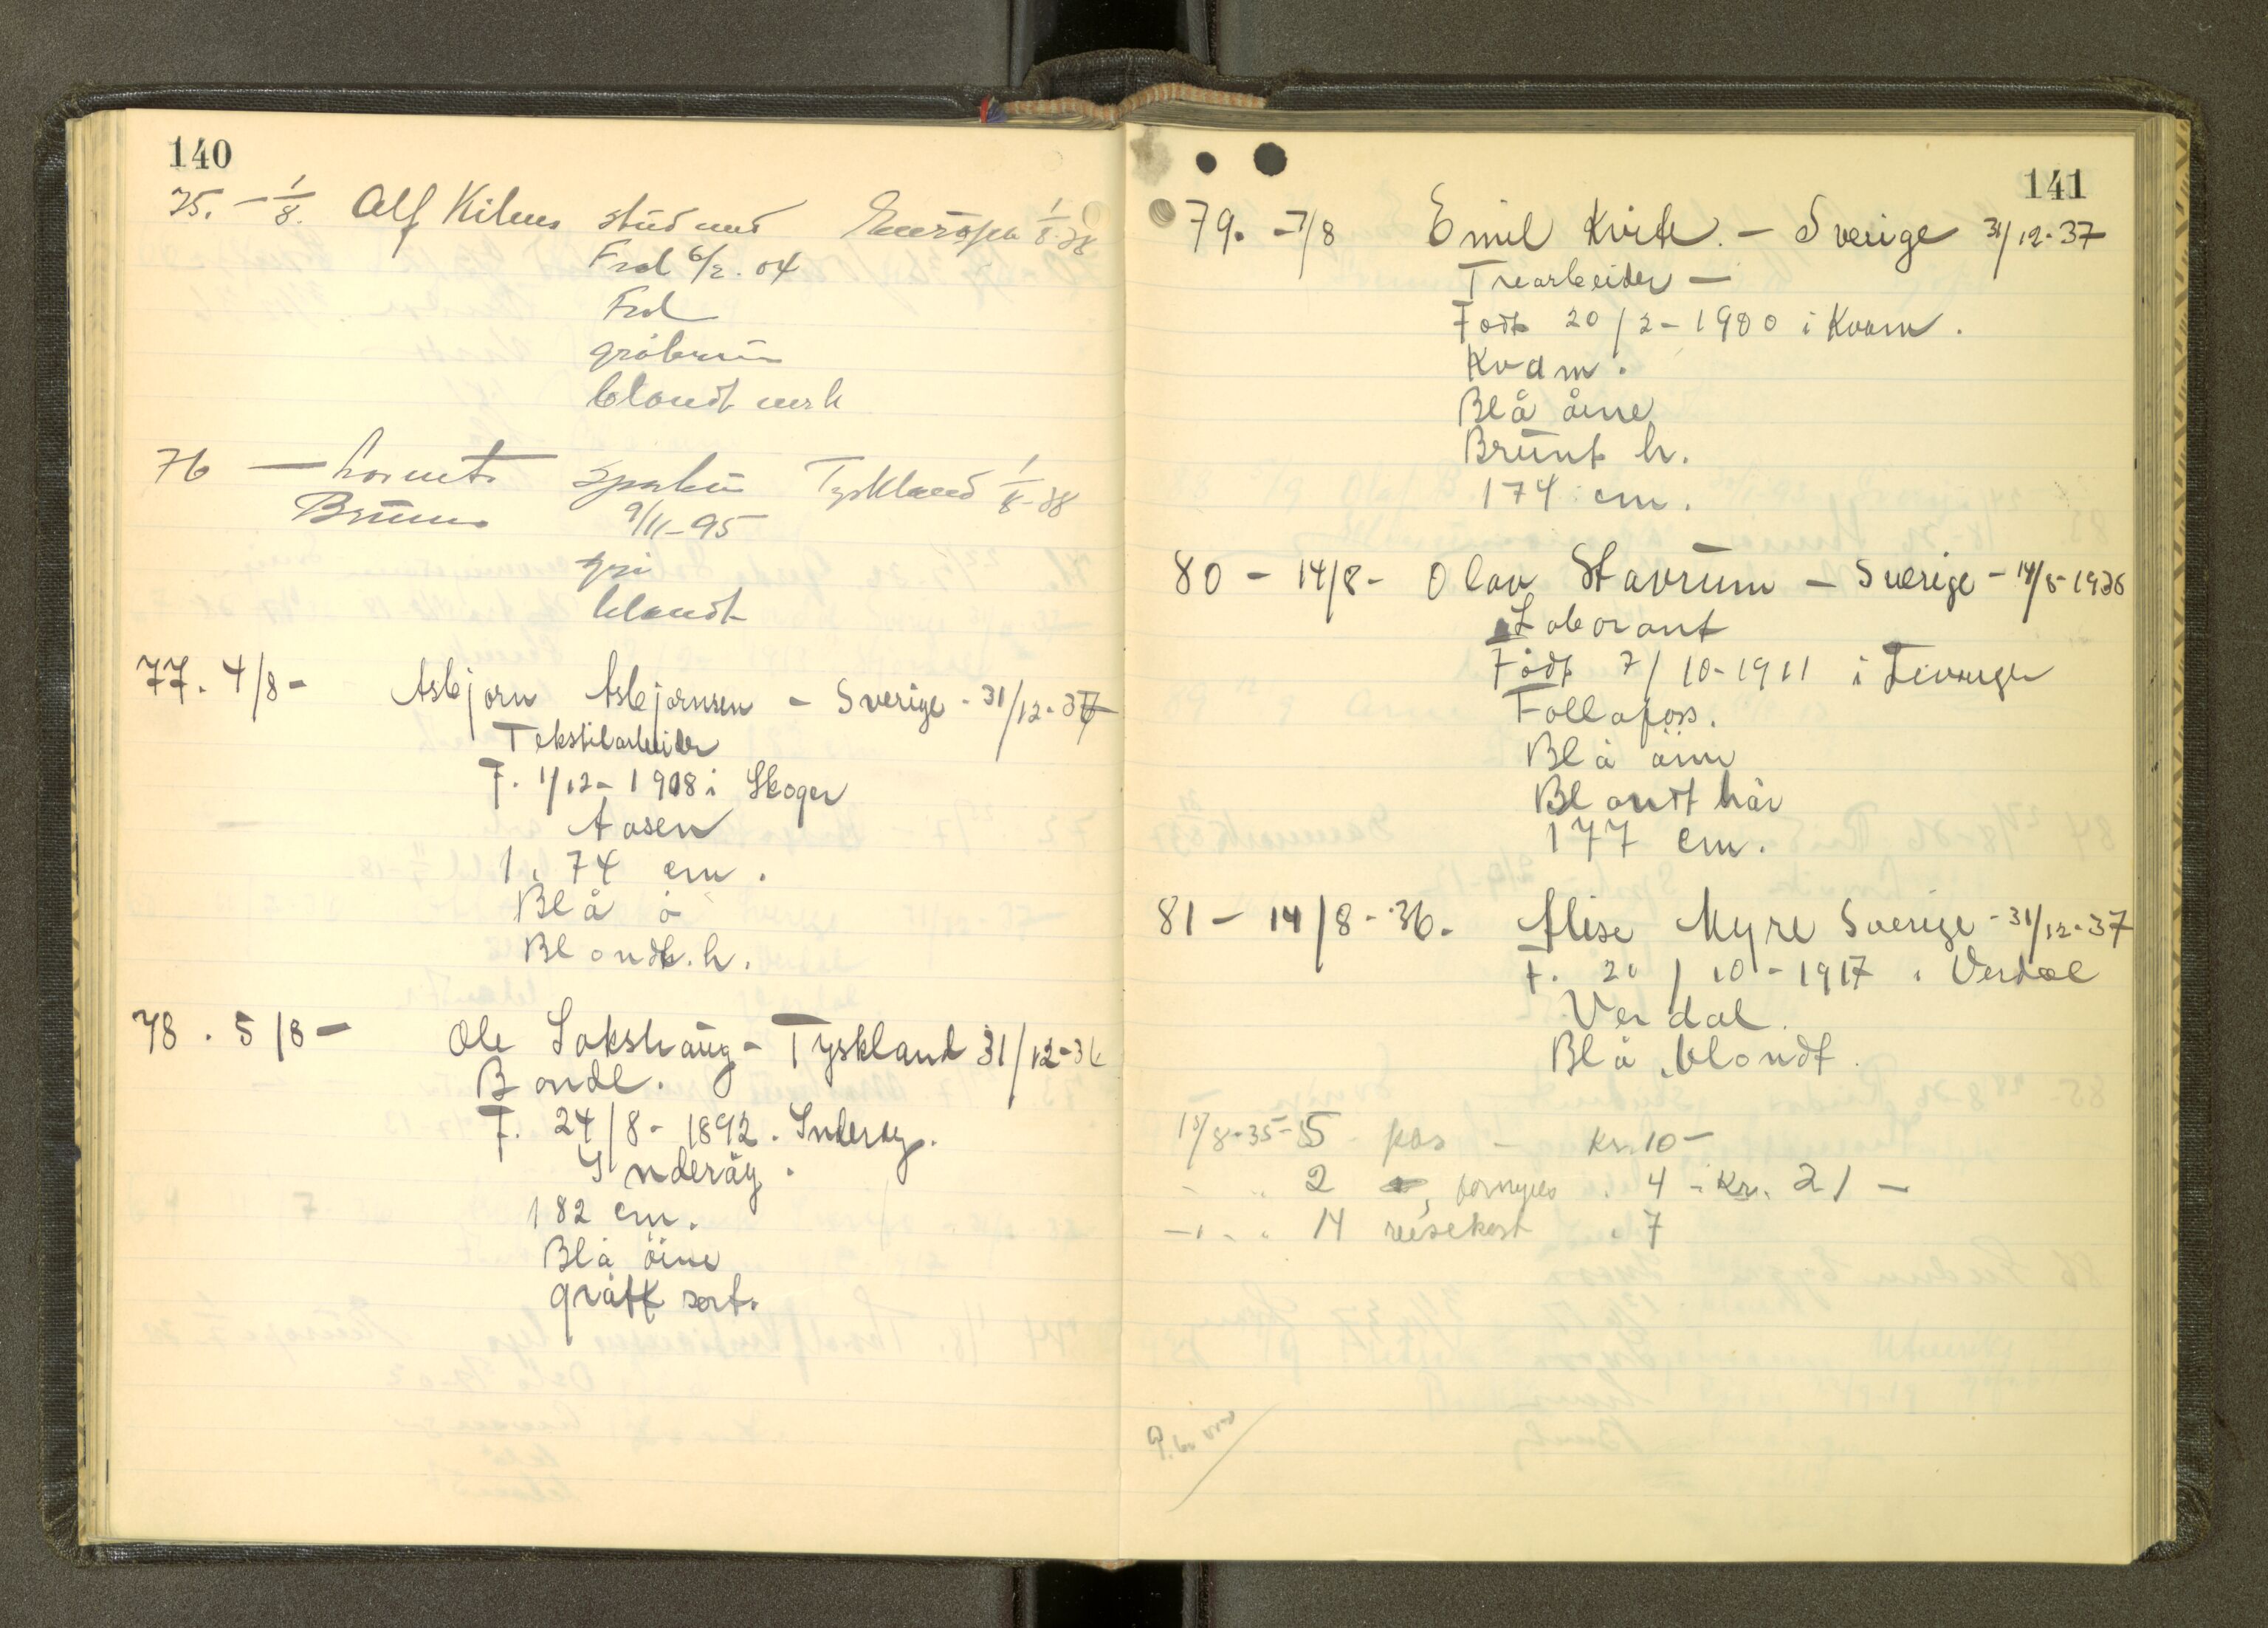 140
75. - 1/8. Alf Kilnes stud med Europa 1/8-38
Frol 6/2. 04
Frol
gråbrun
blondt mrk
76 — Spark Tyskland 1/8-38
9/11-95
grå
blondt
77. 4/8 - Asbjørn Asbjørnsen - Sverige - 31/12-37
Tekstilarbeider
F. 1/12 - 1908 i Skoger
Aasen
1. 74 cm.
Blå ø
Blondt. h.
78. 5/8 - Ole Sakshaug - Tyskland 31/12-36
Bonde.
F. 24/8 - 1892. Inderøy.
Inderøy.
182 cm.
Blå øine
grått sort.
141
79. - 7/8 Emil Kvite. - Sverige 31/12-37
Trearbeider -
Født 20/2 - 1900 i Kvam.
Kvam.
Blå øine
Brunt h.
174 cm.
80 - 14/8 - Olav Stavrum - Sverige - 14/8-1936
Laborant
Født 7/10-1911 i Levanger
Follafoss.
Blå øine
Blondt hår
177 cm.
81 - 14/8 - 36. Alise Myre Sverige - 31/12-37
F. 20/10 - 1917 i Verdal
Verdal.
Blå, blondt.
15/8-35 - 5 pas - Kr. 10 -
- " 2 fornyes . 4 - Kr. 21 -
- " . 14 reisekort . 7